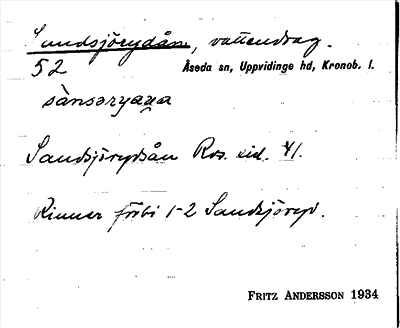 Sandsjörydsån, vattendrag.
52 Åseda sn, Uppvidinge hd, Kronob. l.
sànsəryaɡa
Sandsjörydsån Ros. sid. 41.
Rinner förbi 1-2 Sandsjöryd.
FRITZ ANDERSSON 1934